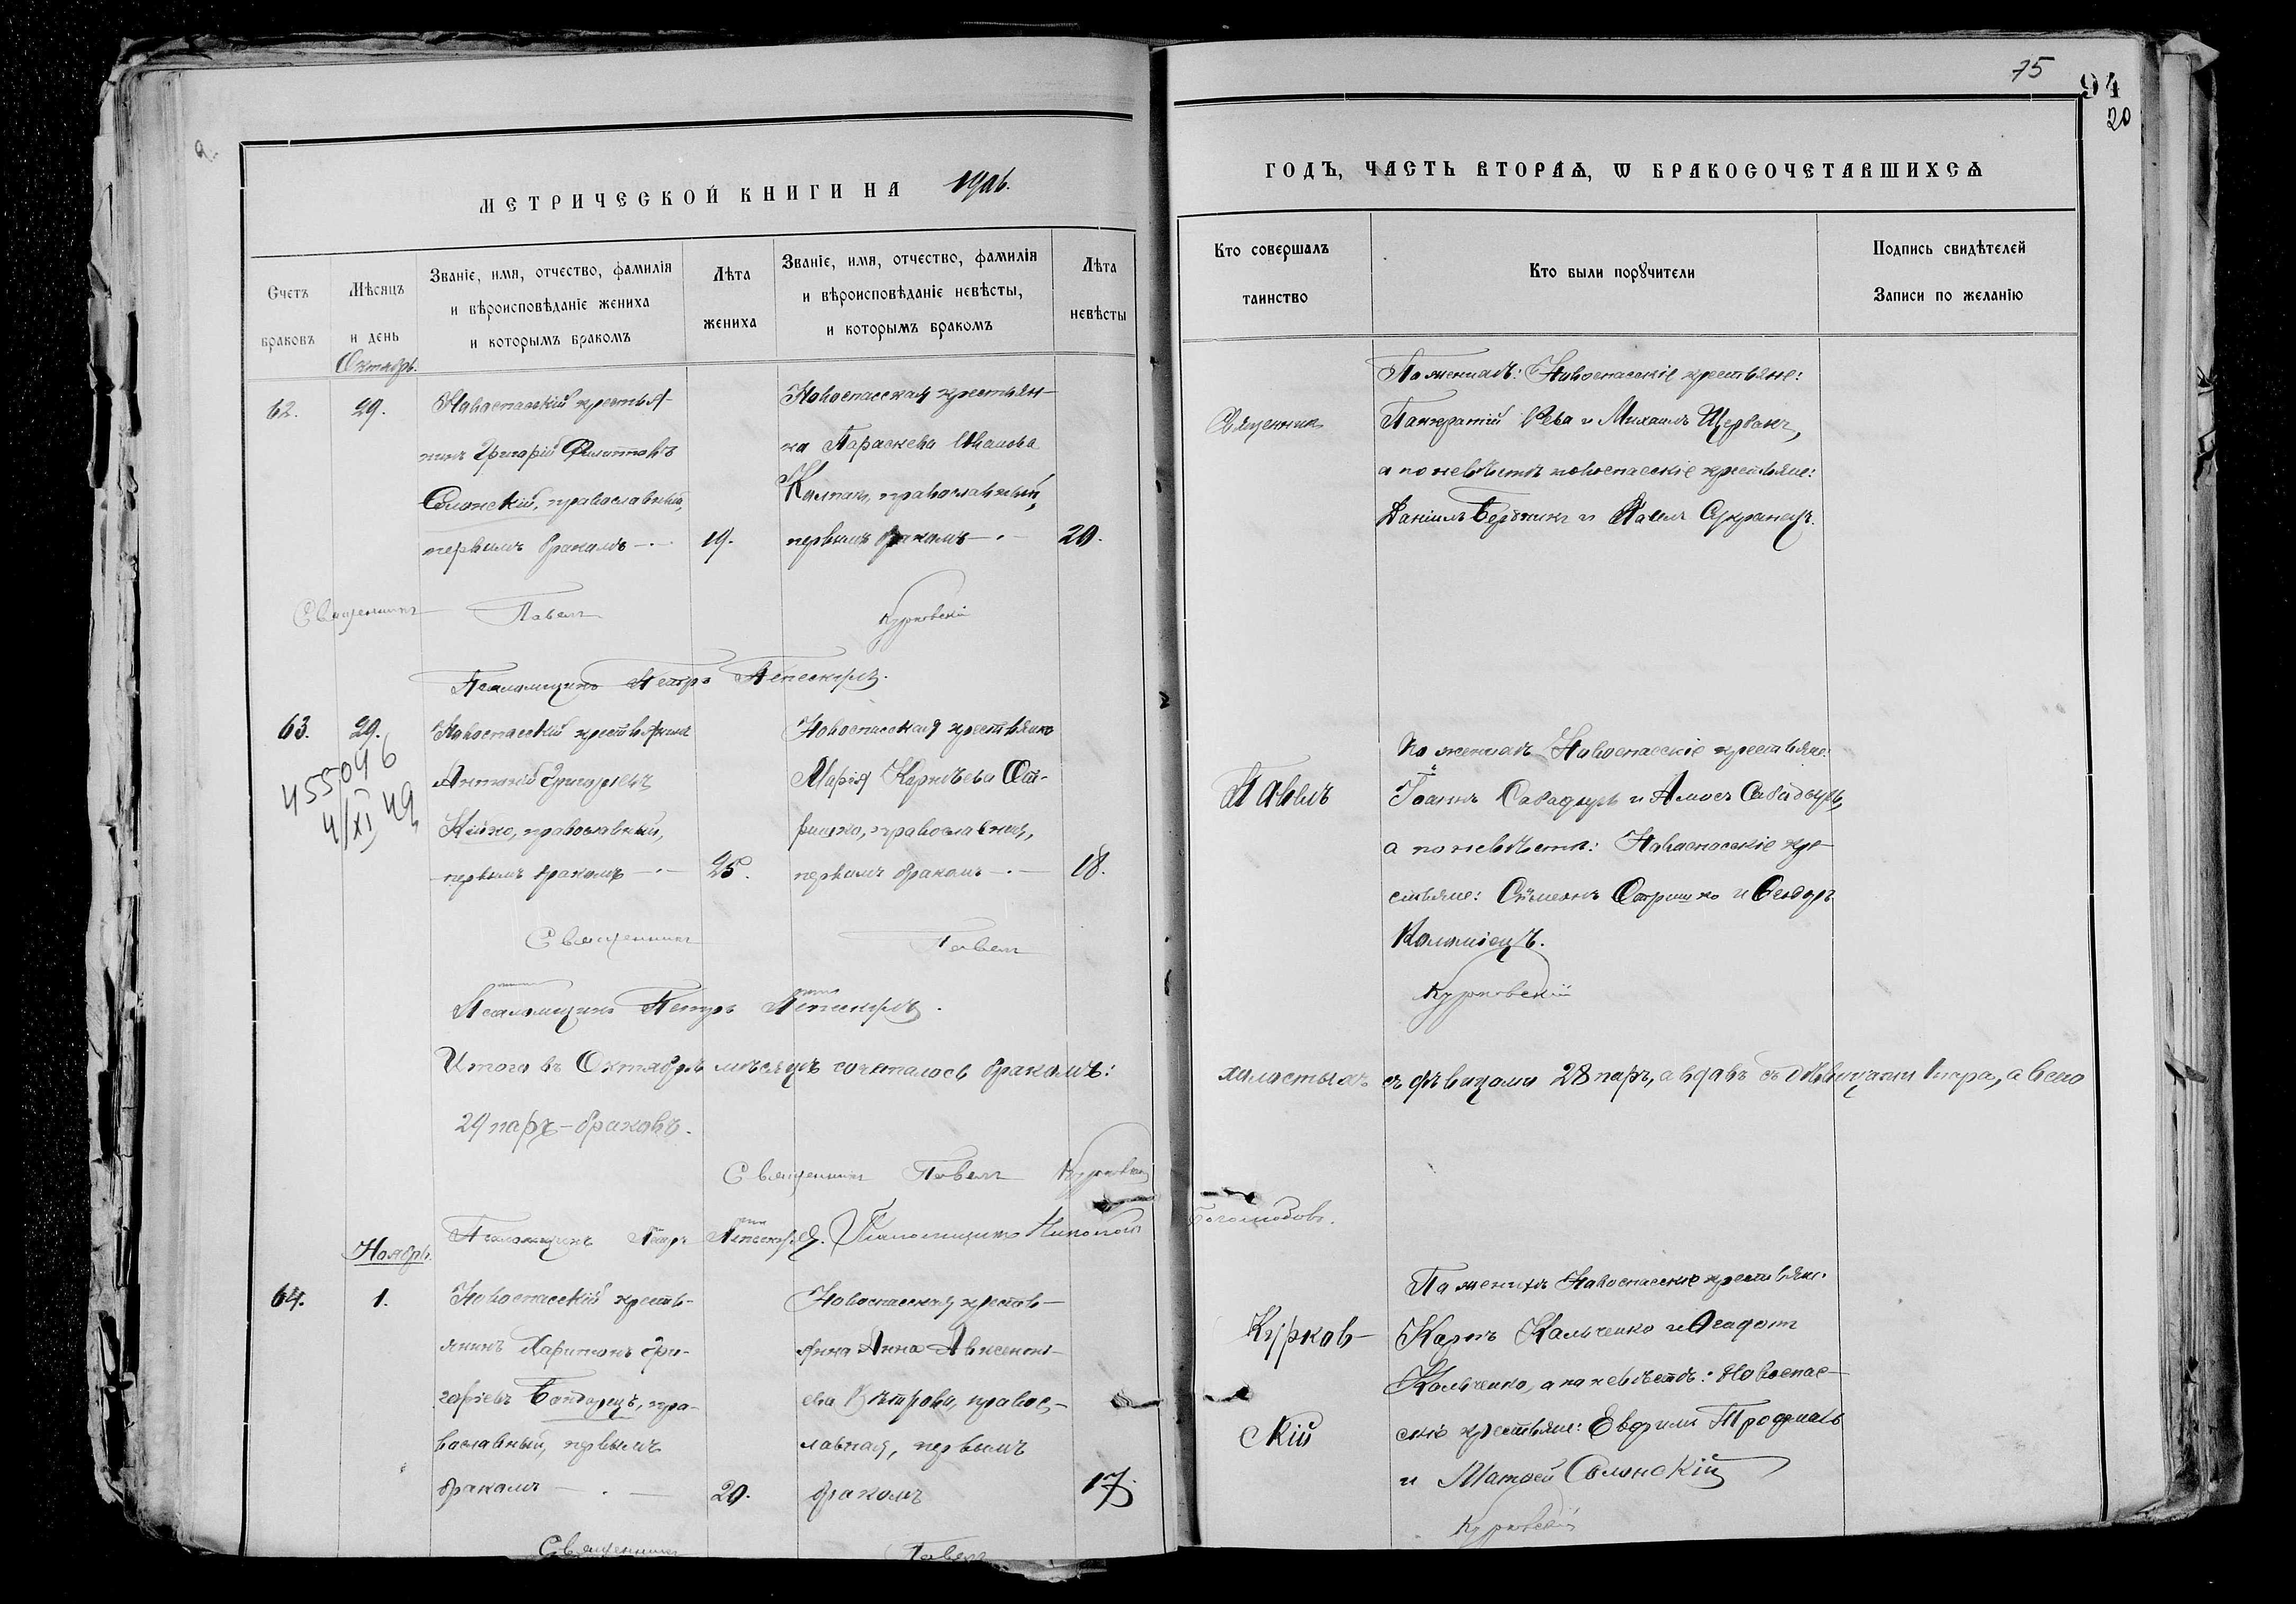 75
94
20
МЕТРИЧЕСКОЙ КНИГИ НА 1906.
ГОДЪ, ЧАСТЬ ВТОРАѦ, Ѡ БРАКОСОЧЕТАВШИХСѦ
Счетъ браковъ
Мѣсяцъ и день
Званіе, имя, отчество, фамилія и вѣроисповѣданіе жениха и которымъ бракомъ
Лѣта жениха
Званіе, имя, отчество, фамилія и вѣроисповѣданіе невѣсты, и которымъ бракомъ
Лѣта невѣсты
Кто совершалъ таинство
Кто были порꙋчители
Подпись свидѣтелей Записи по желанію
Октябрь.
62. 29.
Новоспасскій крестья-
нинъ Григорій Филипповъ
Солонскій, православный,
первымъ бракомъ — 19.
Новоспасская крестьян-
ка Параскева Иванова
православный,
первымъ бракомъ — 20.
Священникъ
По женихѣ: Новоспасскіе крестьяне:
Панкратій Рева и Михаилъ Щербакъ,
а по невѣстѣ новоспасскіе крестьяне:
Даніилъ и Павелъ
Священникъ Павелъ Курковскій
Псаломщикъ Петръ
63. 29.
455096
4/XI 49
Новоспасскій крестьянинъ
Антоній Григорьевъ
Кійко, православный,
первымъ бракомъ — 25.
Новоспасская крестьянка
Марія Корнѣева От-
ришко, православная,
первымъ бракомъ — 18.
Павелъ
По женихѣ Новоспасскіе крестьяне:
Іоаннъ Сабадырь и Амосъ Сабадырь,
а по невѣстѣ: Новоспасскіе кре-
стьяне: Сѵмеонъ Отришко и Ѳеодоръ
Коломіецъ.
Священникъ Павелъ Курковскій
Псаломщикъ Петръ
Итого въ Октябрѣ мѣсяцѣ сочеталось бракомъ: холостыхъ съ дѣвицами 28 паръ, а вдовъ съ дѣвицами 1 пара, а всего
29 паръ-браковъ.
Священникъ Павелъ Курковскій
Псаломщикъ Петръ Псаломщикъ Николай Боголюбовъ.
Ноябрь.
64. 1.
Новоспасскій кресть-
янинъ Харитонъ Гри-
горіевъ Бондарецъ, пра-
вославный, первымъ
бракомъ — 20.
Новоспасская кресть-
янка Анна Авксенті-
ева Вѣтрова, правос-
лавная, первымъ
бракомъ 17.
Курков-
скій
По женихѣ Новоспасскіе крестьяне:
Карпъ Кальченко и Ѳеодотъ
Кальченко, а по невѣстѣ: Новоспас-
скіе крестьяне: Евфимъ
и Матѳей Солонскій
Курковскій
Священникъ Павелъ